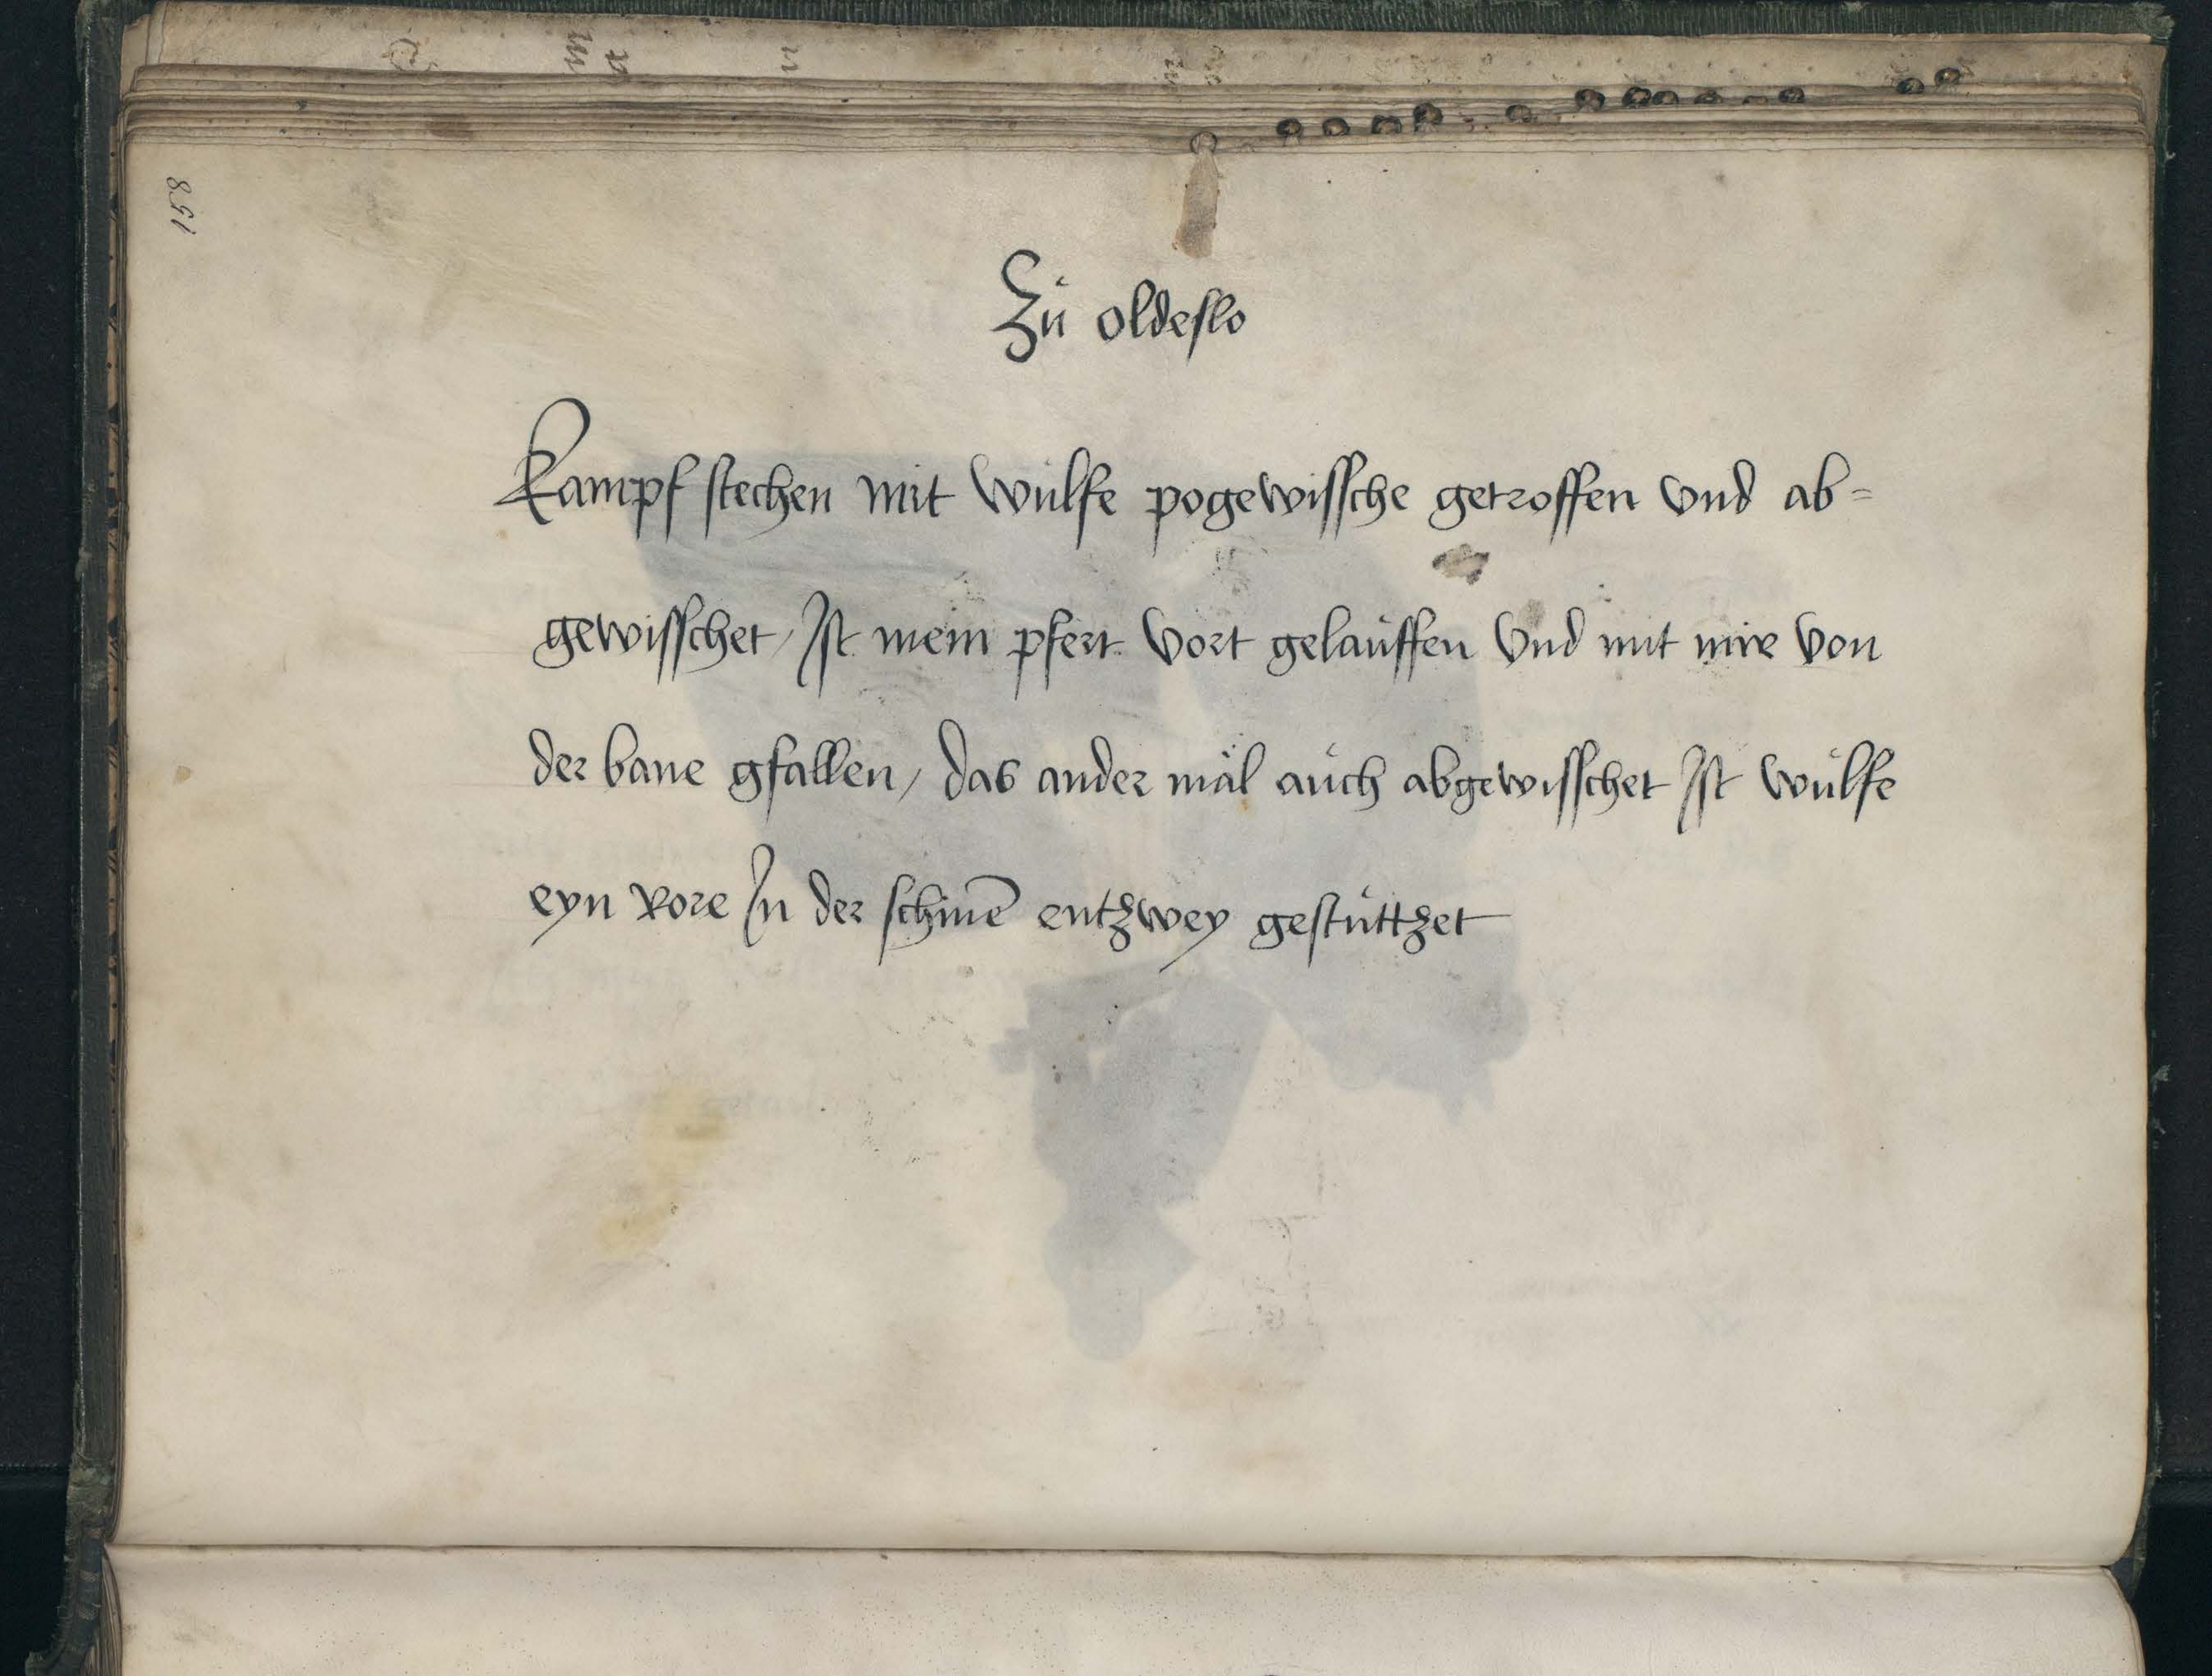 158
Zů oldeslo
Kampf stechen mit wůlfe pogewissche getroffen vnd ab=
gewisschet / Ist mein pfert vort gelaůffen vnd mit mir von
der bane gfallen / das ander mäl aůch abgewisschet Ist wůlfe
eyn rore In der schinē entzwey gestůttzet